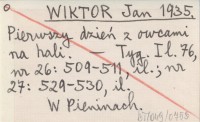 WIKTOR Jan 1935.
Pierwszy dzień z owcami
na hali. — Tyg. Il. 76,
nr 26: 509-511, il.; nr
27: 529-530, il.
W Pieninach.